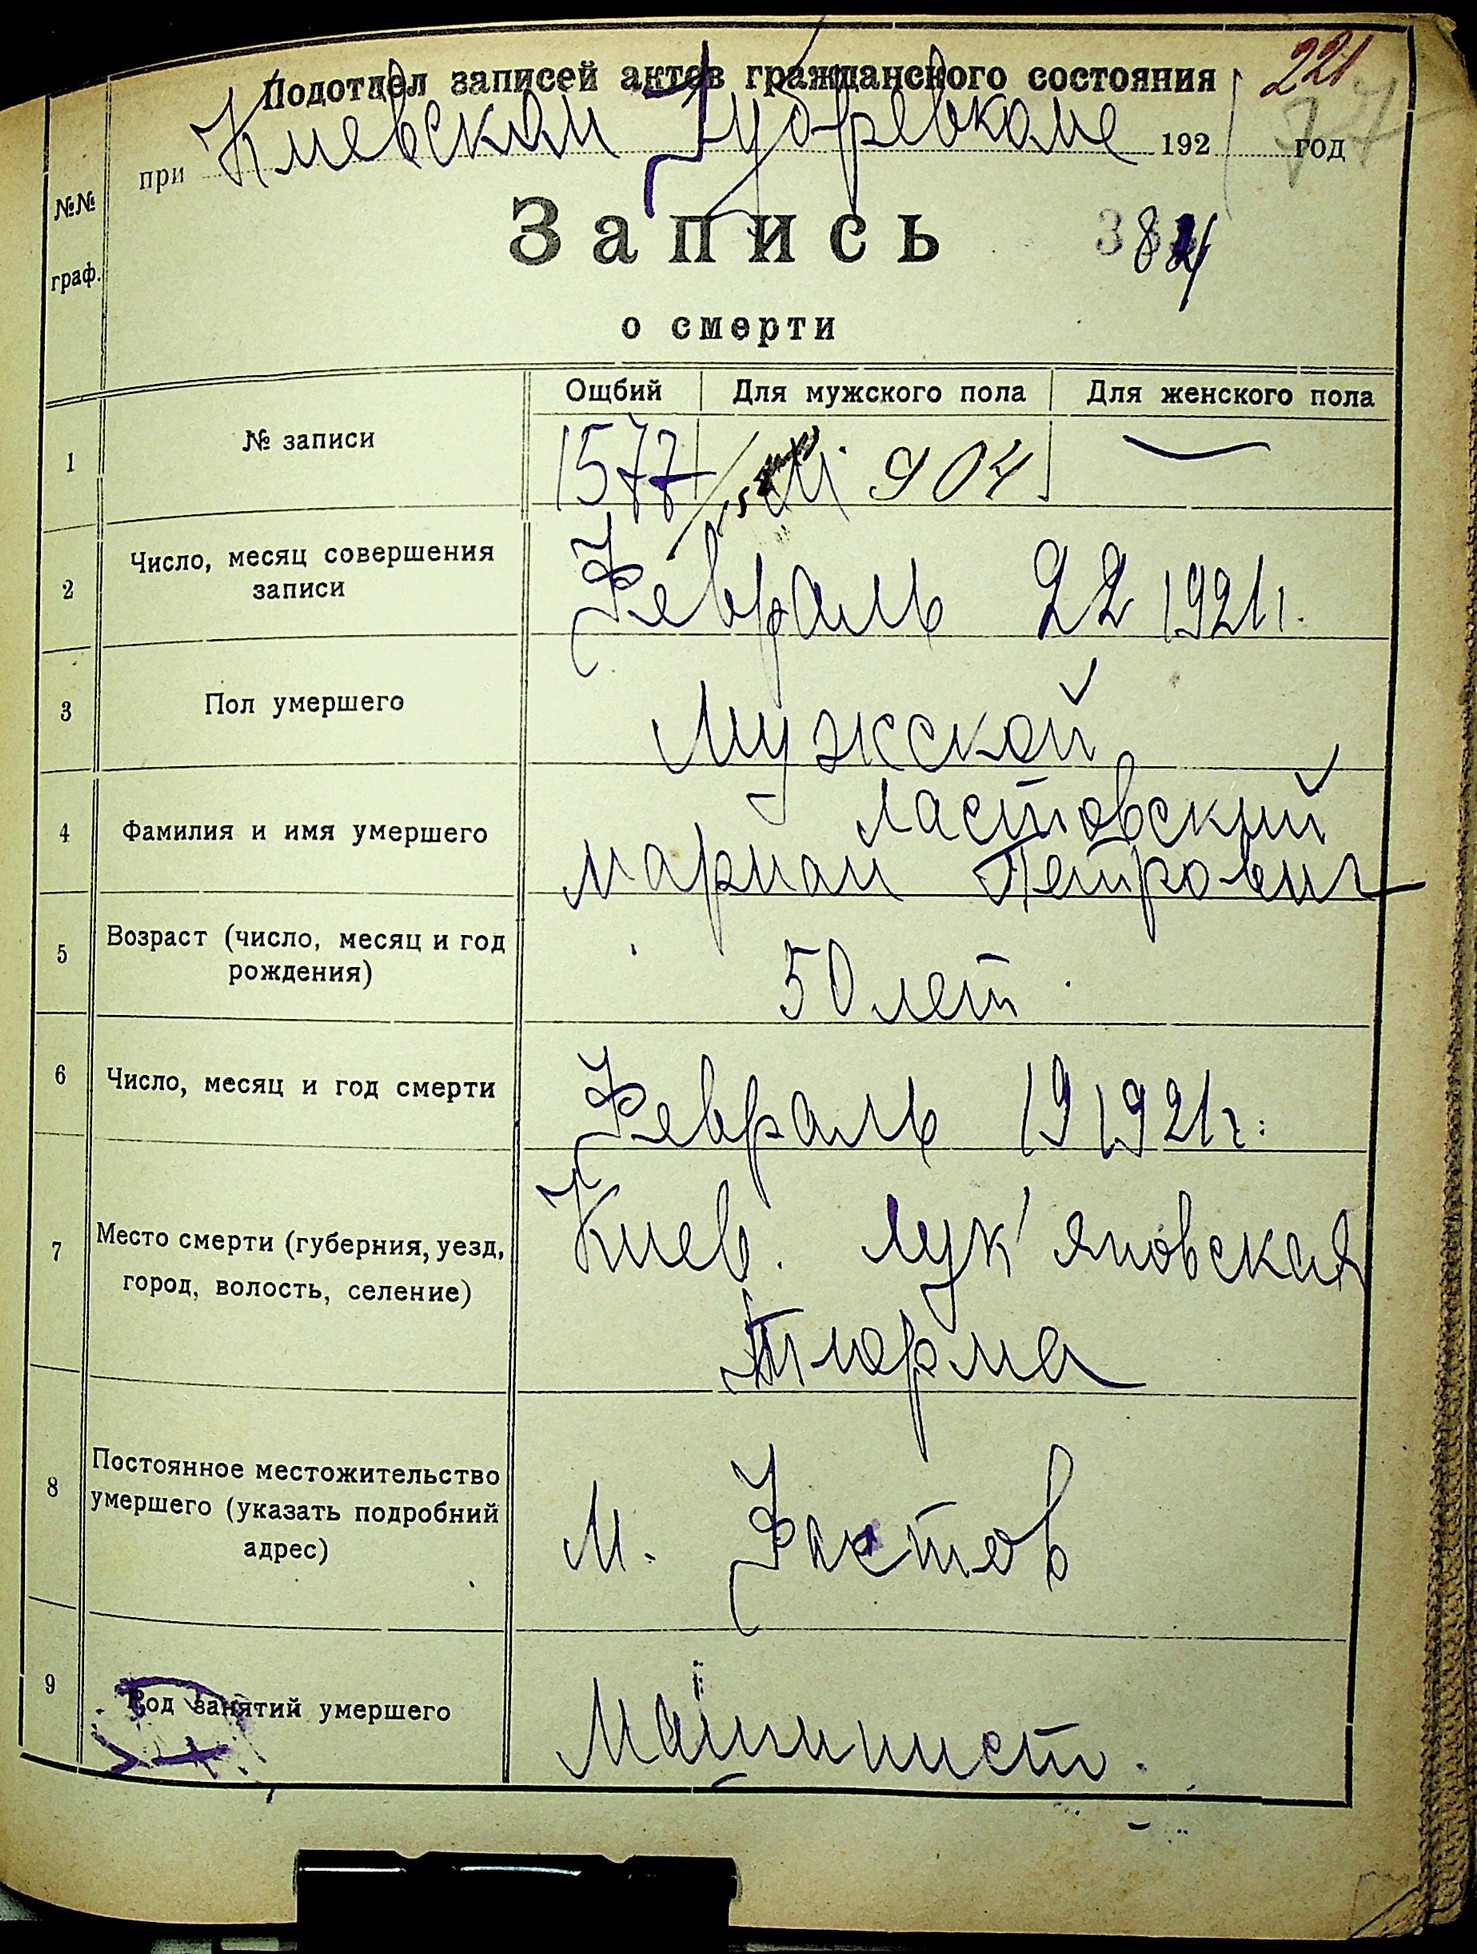 Подотдел записей актов гражданского состояния
221
77
при Киевском Губревкоме 1921 год
Запись
384
о смерти
№№ граф.
Ощбий Для мужского пола Для женского пола
1 № записи 1577 М 904
2 Число, месяц совершения
записи
Февраль 22 1921 г.
3 Пол умершего Мужской
4 Фамилия и имя умершего
Ластовский
Мариан Петрович
5 Возраст (число, месяц и год
рождения)
50 лет
6 Число, месяц и год смерти Февраль 19 1921 г.
7 Место смерти (губерния, уезд,
город, волость, селение)
Киев. Лук'яновская
Тюрма
8 Постоянное местожительство
умершего (указать подробний
адрес)
м. Фастов
9 Род занятий умершего Машинист.